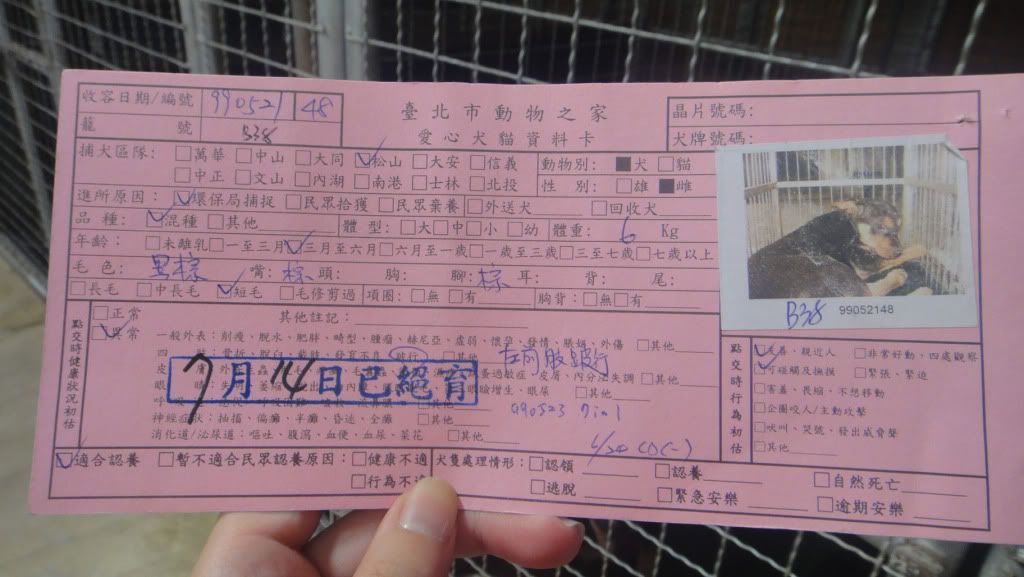 收容日期/編號 990521 48
籠 號 B38
臺北市動物之家
愛心犬貓資料卡
晶片號碼:
犬牌號碼:
捕犬區隊: □萬華 □中山 □大同 ☑松山 □大安 □信義
□中正 □文山 □內湖 □南港 □士林 □北投
動物別: ■犬 □貓
性 別: □雄 ■雌
進所原因: ☑環保局捕捉 □民眾拾獲 □民眾棄養 □外送犬 □回收犬
品 種: ☑混種 □其他 體 型: □大□中□小 □幼 體重: 6 Kg
年齡: □未離乳 □一至三月 ☑三月至六月 □六月至一歲 □一歲至三歲 □三至七歲 □七歲以上
毛 色: 黑棕 嘴: 棕 頭: 胸: 腳: 棕 耳: 背: 尾:
□長毛 □中長毛 ☑短毛 □毛修剪過 項圈: □無 □有 胸背: □無 □有
B38 99052148
點交時健康狀況初估
□正常
☑異常
其他註記:
一般外表: 削瘦、脫水、肥胖、畸型、腫瘤、赫尼亞、虛弱、懷孕、發情、脹奶、外傷 □其他
跛行 □其他 左前肢跛行
過敏症、皮膚、內分泌失調 □其他
7月14日已絕育
眼瞼增生、眼屎 □其他
990523 7in1
神經症狀: 抽搐、偏癱、半癱、昏迷、全癱 □其他
消化道/泌尿道: 嘔吐、腹瀉、血便、血尿、菜花 □其他
6/30 CD(-)
點交時行為初估
☑友善、親近人 □非常好動、四處觀察
□可碰觸及撫摸 □緊張、緊迫
□害羞、畏縮、不想移動
□企圖咬人/主動攻擊
□吠叫、哭號、發出威脅聲
□其他
☑適合認養 □暫不適合民眾認養原因: □健康不適
□行為不適
犬隻處理情形: □認領 □認養 □自然死亡
□逃脫 □緊急安樂 □逾期安樂